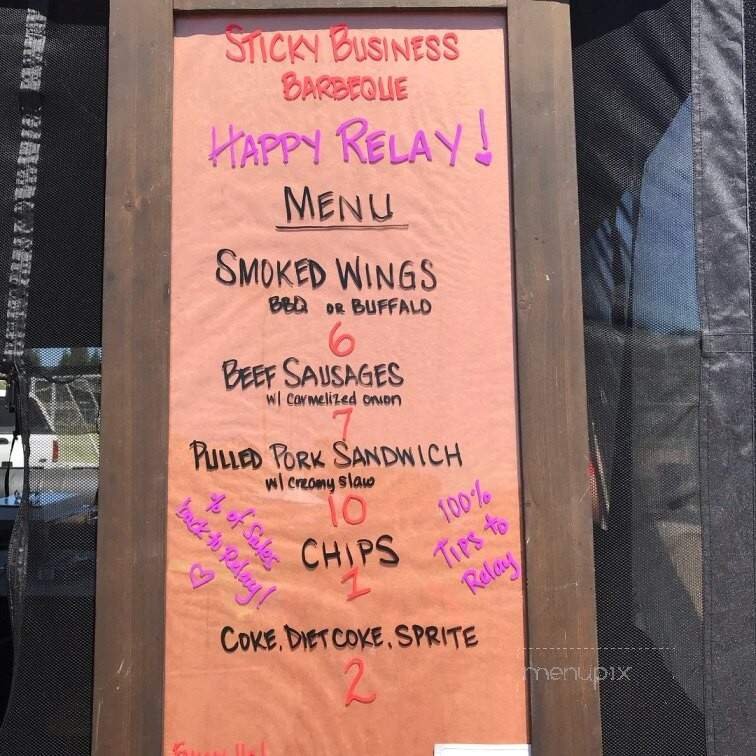 STICKY BUSINESS
BARBEQUE
HAPPY RELAY!
MENU
SMOKED WINGS
BBQ OR BUFFALO
6
BEEF SAUSAGES
w/ Carmelized onion
7
PULLED PORK SANDWICH
w/ creamy slaw
10
% of Sales
back to Relay!
100%
TIPS to
Relay
CHIPS
1
COKE, DIET COKE, SPRITE
2
menupix